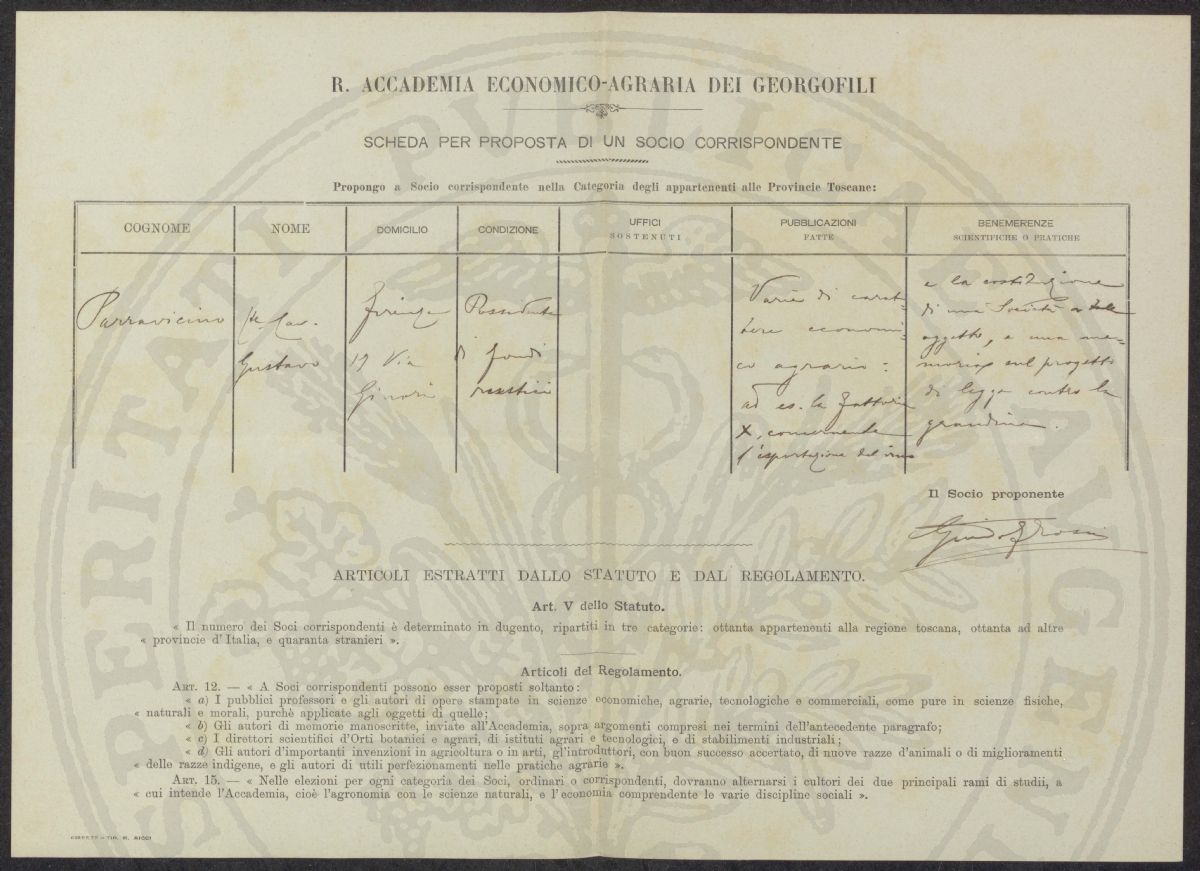 R. ACCADEMIA ECONOMICO-AGRARIA DEI GEORGOFILI
SCHEDA PER PROPOSTA DI UN SOCIO CORRISPONDENTE
Propongo a Socio corrispondente nella Categoria degli appartenenti alle Provincie Toscane:
COGNOME
NOME
DOMICILIO
CONDIZIONE
UFFICI
SOSTENUTI
PUBBLICAZIONI
FATTE
BENEMERENZE
SCIENTIFICHE O PRATICHE
Parravicino
Cav.
Gustavo
Firenze
19 Via
Ginori
Possidente
di fondi
rustici
Varie di carat-
tere economi-
co agrario:
ad es. la Fattoria
X, concernente
l'esportazione del vino
e la costituzione
di una Società a tale
oggetto, e una me-
moria sul progetto
di legge contro la
grandine.
Il Socio proponente
Guido
ARTICOLI ESTRATTI DALLO STATUTO E DAL REGOLAMENTO.
Art. V dello Statuto.
« Il numero dei Soci corrispondenti è determinato in dugento, ripartiti in tre categorie: ottanta appartenenti alla regione toscana, ottanta ad altre
« provincie d'Italia, e quaranta stranieri ».
Articoli del Regolamento.
ART. 12. — « A Soci corrispondenti possono esser proposti soltanto:
« a) I pubblici professori e gli autori di opere stampate in scienze economiche, agrarie, tecnologiche e commerciali, come pure in scienze fisiche,
« naturali e morali, purchè applicate agli oggetti di quelle;
« b) Gli autori di memorie manoscritte, inviate all'Accademia, sopra argomenti compresi nei termini dell'antecedente paragrafo;
« c) I direttori scientifici d'Orti botanici e agrari, di istituti agrari e tecnologici, e di stabilimenti industriali;
« d) Gli autori d'importanti invenzioni in agricoltura o in arti, gl'introduttori, con buon successo accertato, di nuove razze d'animali o di miglioramenti
« delle razze indigene, e gli autori di utili perfezionamenti nelle pratiche agrarie ».
ART. 15. — « Nelle elezioni per ogni categoria dei Soci, ordinari o corrispondenti, dovranno alternarsi i cultori dei due principali rami di studii, a
« cui intende l'Accademia, cioè l'agronomia con le scienze naturali, e l'economia comprendente le varie discipline sociali ».
FIRENZE - TIP. M. RICCI
PROSPERITATI PUBLICAE AUGENDAE